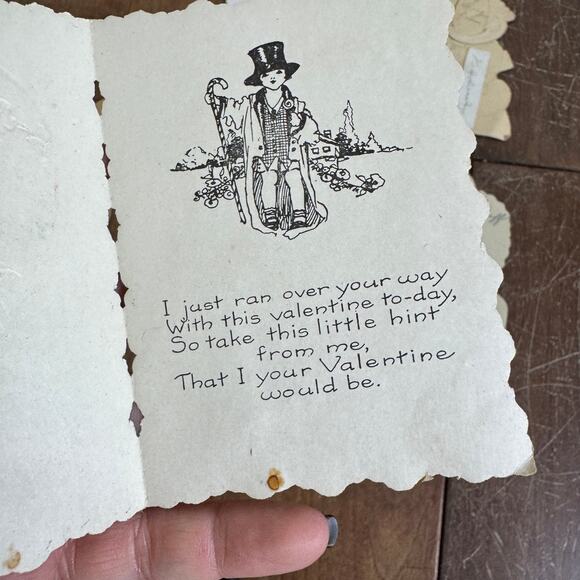 I just ran over your way
With this valentine to-day,
So take this little hint
from me,
That I your Valentine
would be.